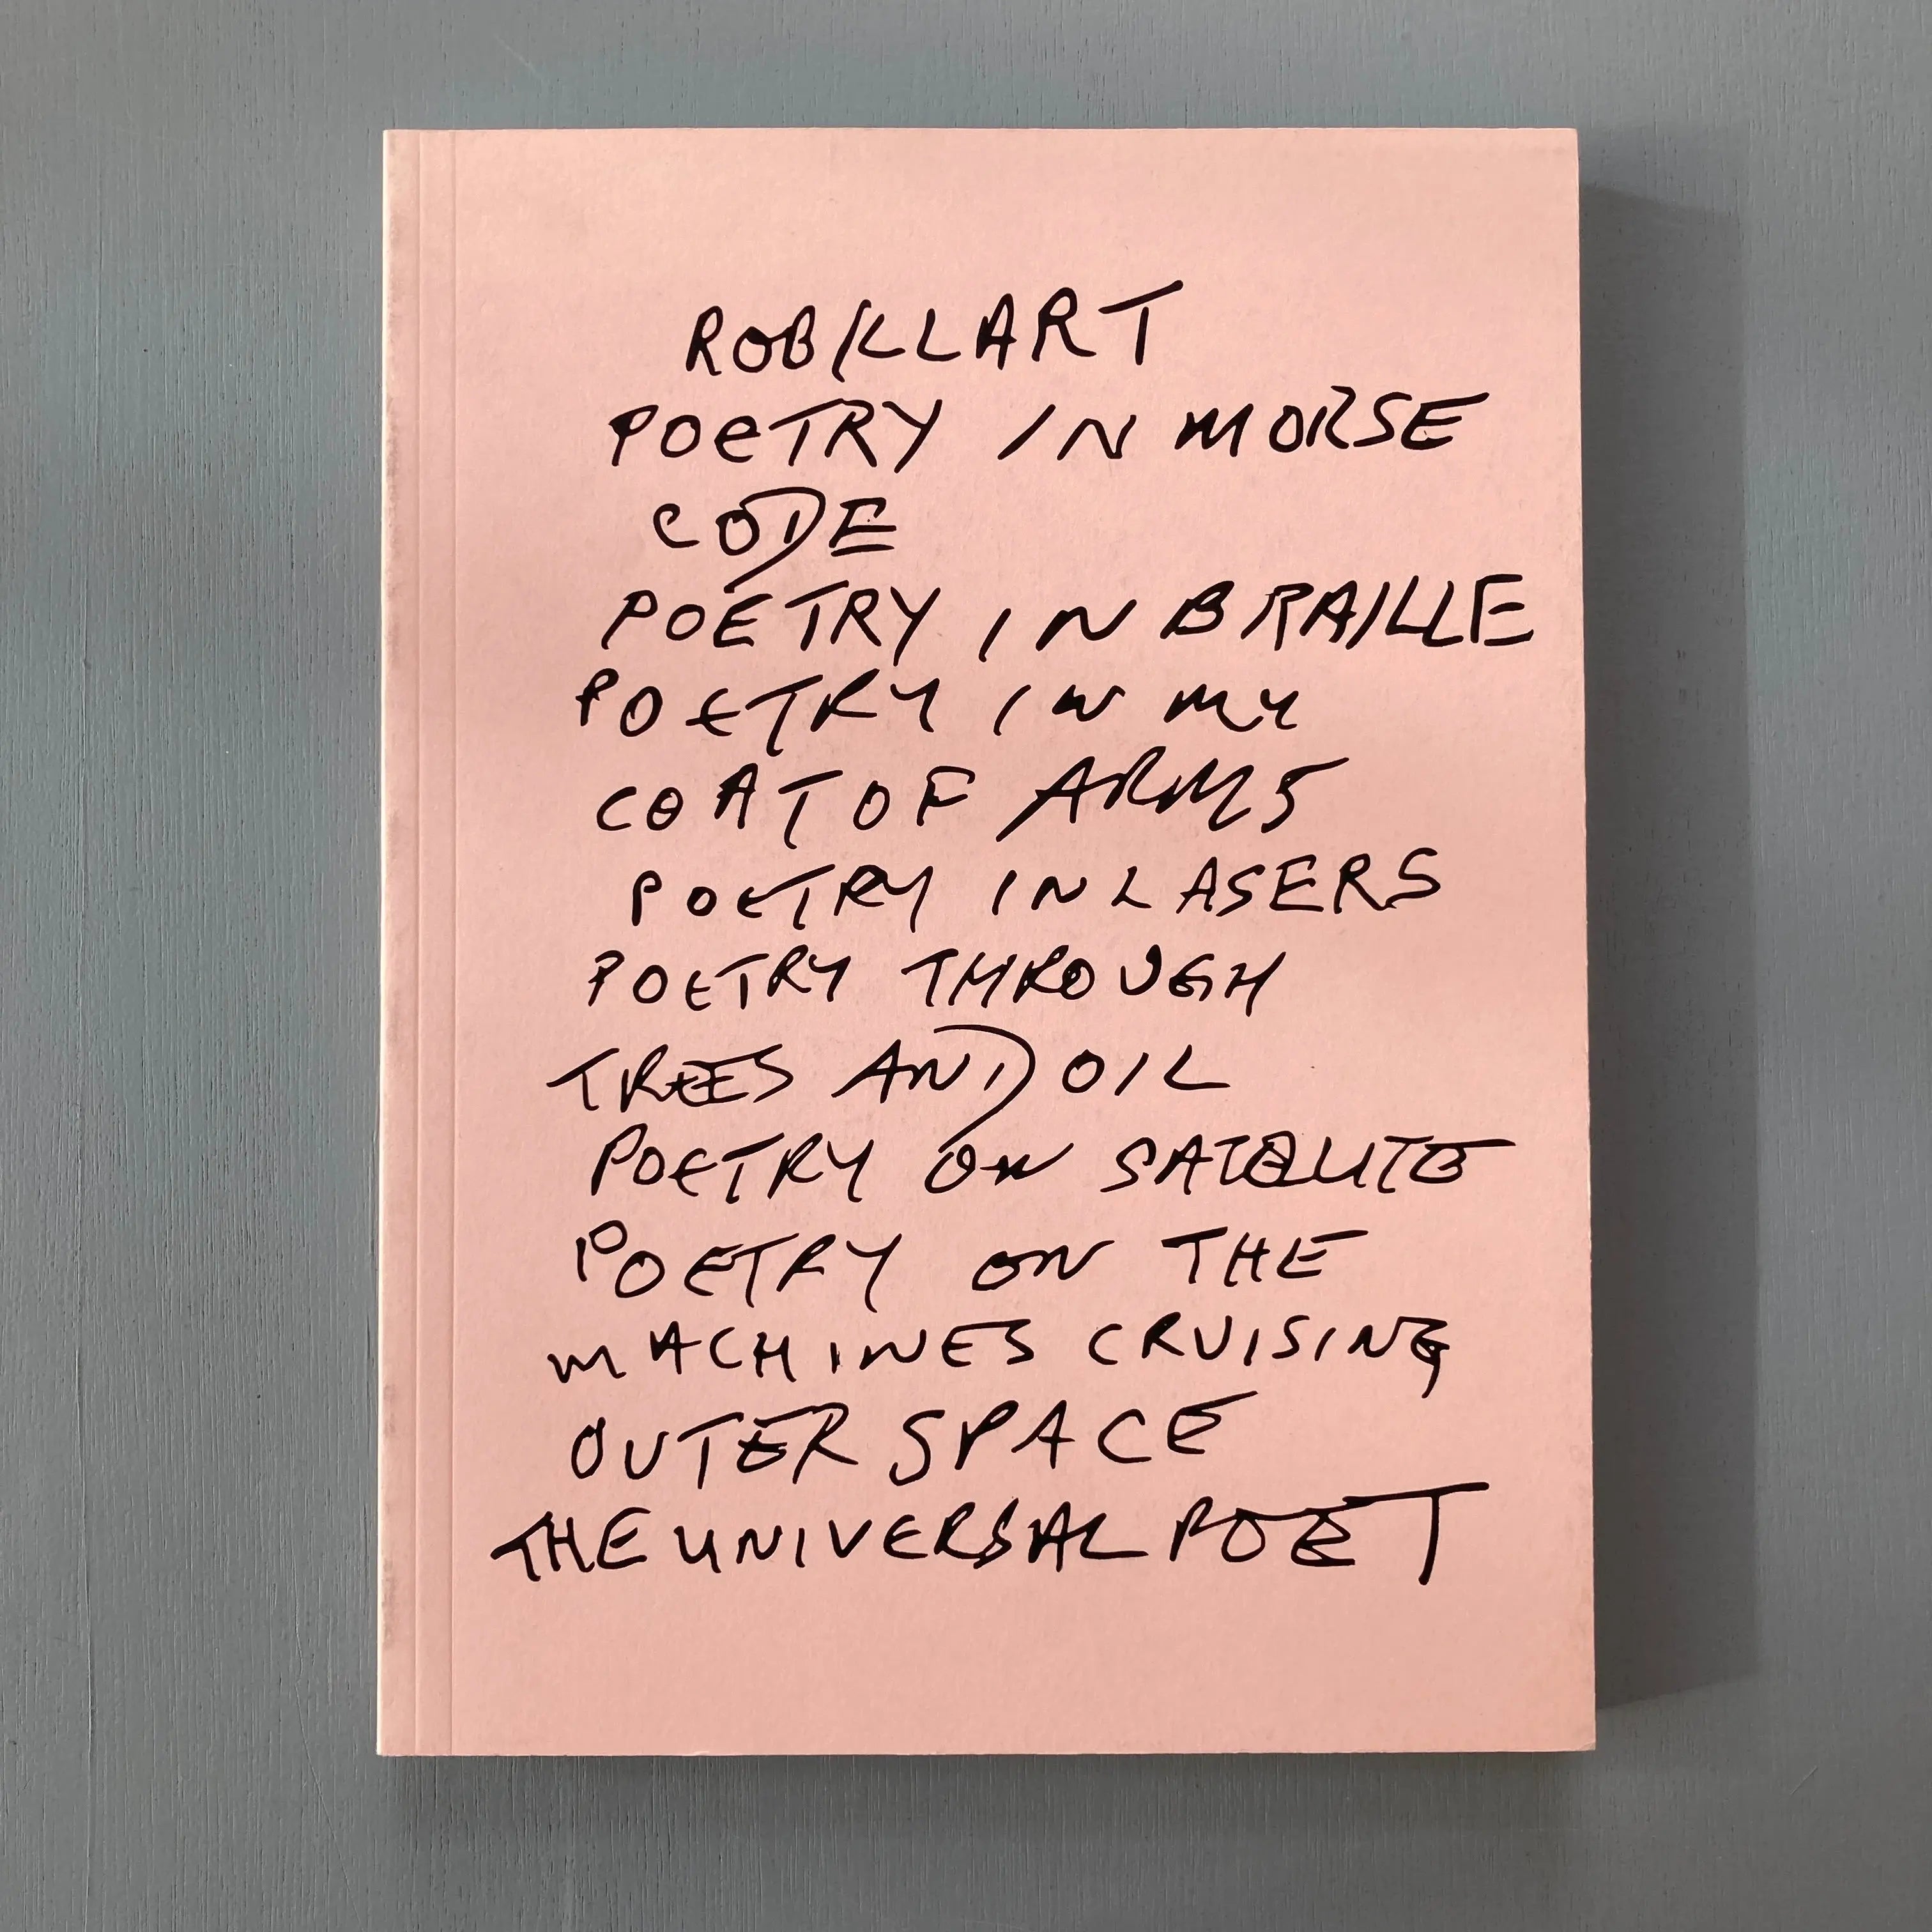 ROBKLLART
POETRY IN MORSE
CODE
POETRY IN BRAILLE
POETRY IN MY
COAT OF ARMS
POETRY IN LASERS
POETRY THROUGH
TREES AND OIL
POETRY ON SATELLITE
POETRY ON THE
MACHINES CRUISING
OUTER SPACE
THE UNIVERSAL POET